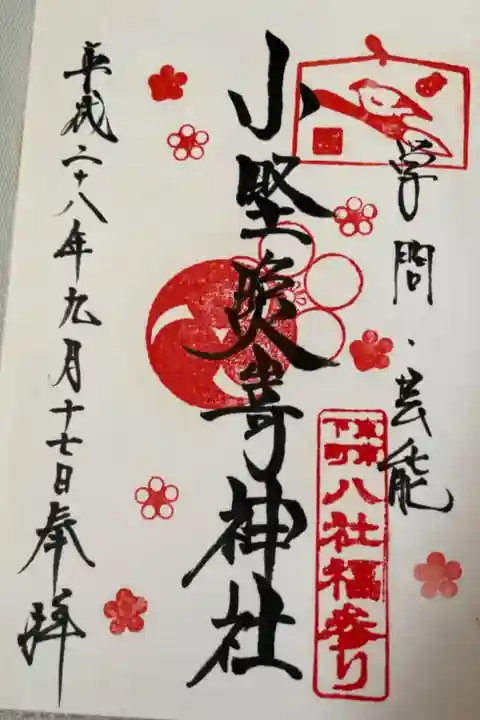 学問・芸能
八社福参り
小嵜神社
平成二十八年九月十七日奉拝